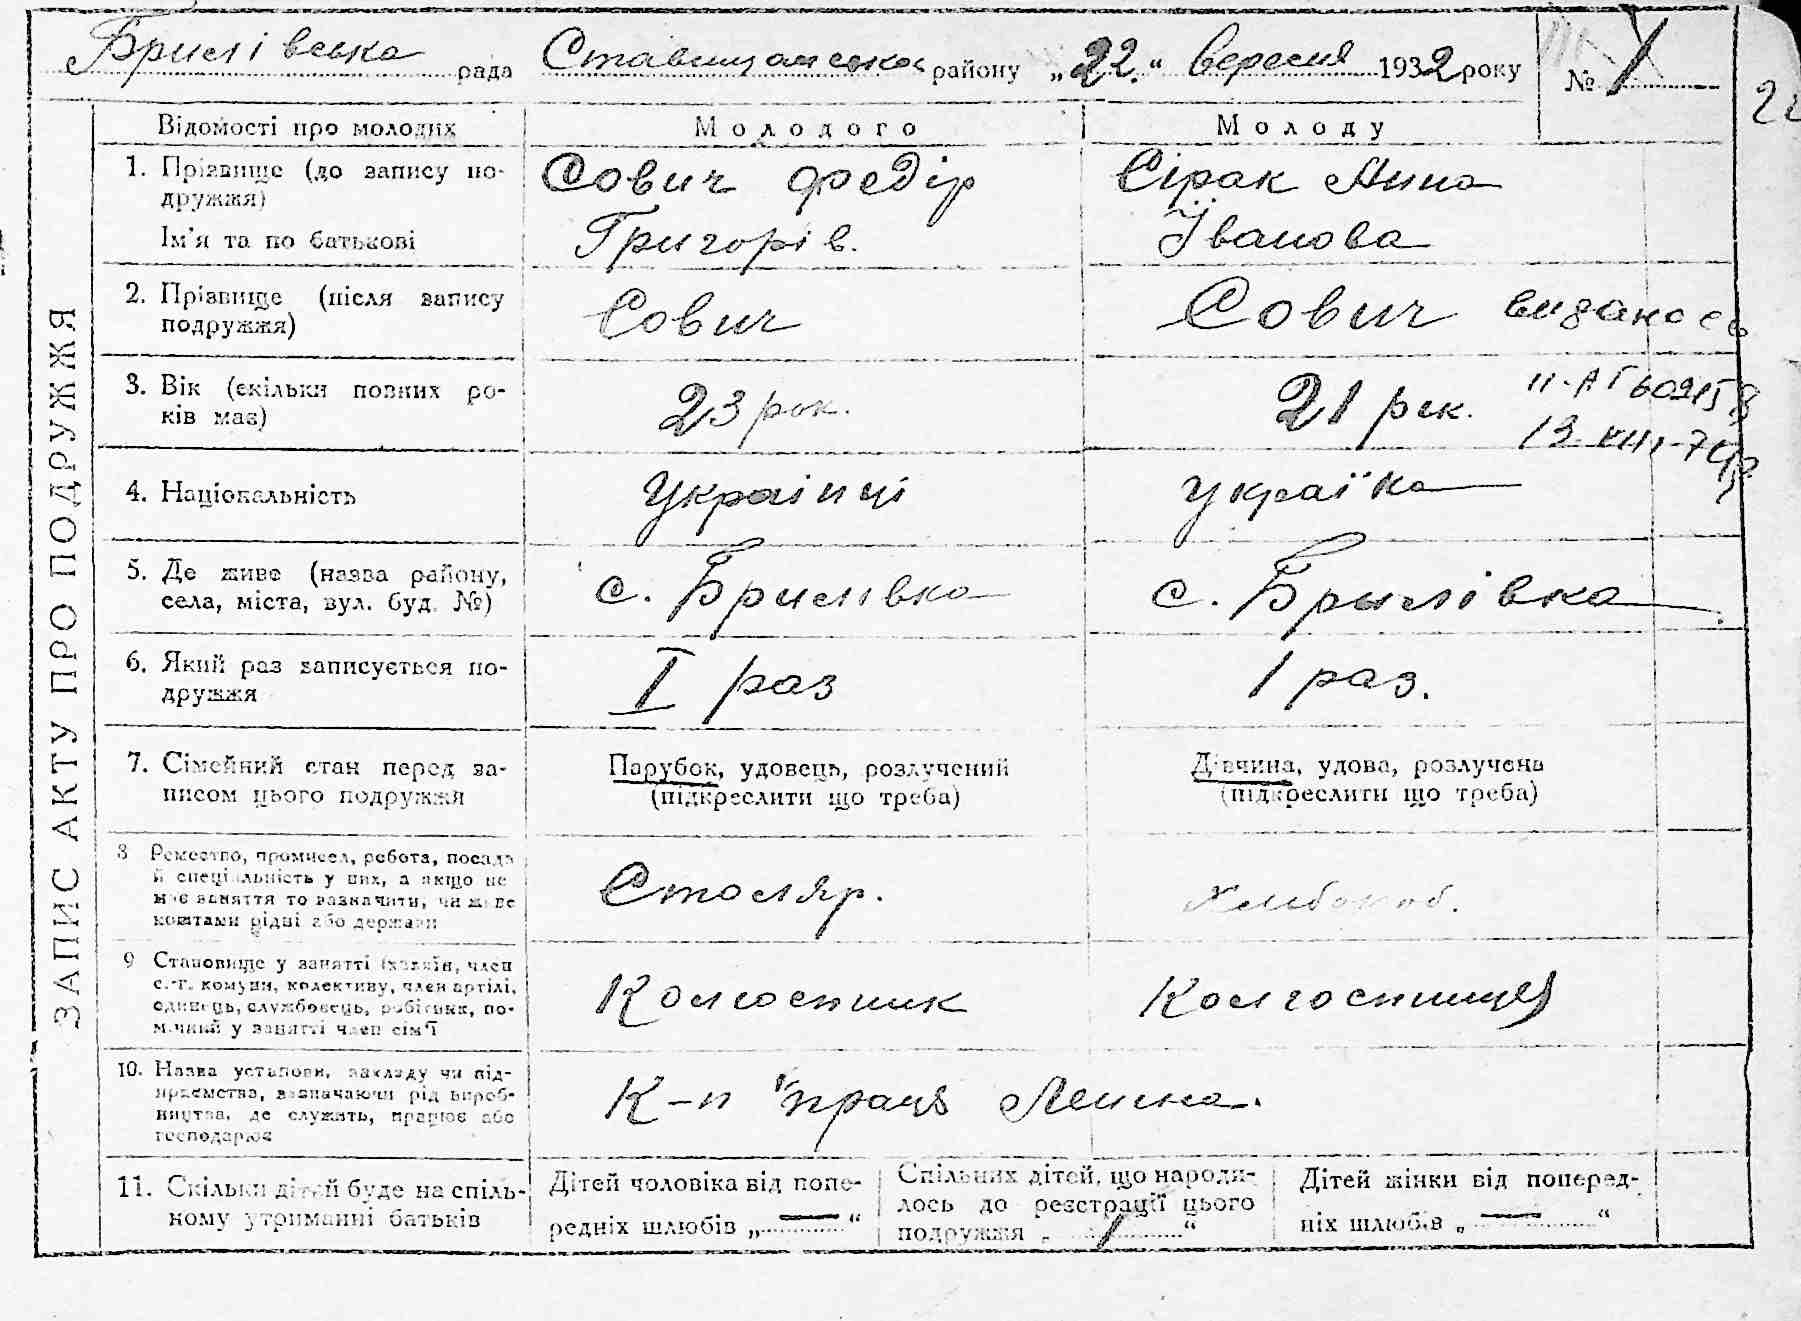 Брилівська рада Ставищанська району „22" вересня 1932 року № 1
Відомості про молодих Молодого Молоду
ЗАПИС АКТУ ПРО ПОДРУЖЖЯ
1. Прізвище (до запису по-
дружжя)
Ім'я та по батькові
Сович Федір
Григорів.
Сірак Анна
Іванова
2. Прізвище (після запису
подружжя)
Сович
Сович
3. Вік (скільки повних ро-
ків має)
23 рок.
21 рок.
4. Національність
Українці
Українка
5. Де живе (назва району,
села, міста, вул. буд. №)
с. Брилівка
с. Брилівка
6. Який раз записується по-
дружжя
I раз
1 раз.
7. Сімейний стан перед за-
писом цього подружжя
Парубок, удовець, розлучений
(підкреслити що треба)
Дівчина, удова, розлучена
(підкреслити що треба)
8 Ремество, промисел, робота, посада
й спеціальність у них, а якщо не
має заняття то зазначити, чи живе
коштами рідні або держави
Столяр.
Хлібороб.
9 Становище у занятті (хазяїн, член
с.-г. комуни, колективу, член артілі,
одинець, службовець, робітник, по-
мічний у занятті член сім'ї
Колгоспник
Колгоспниця
10. Назва установи, закладу чи під-
приємства, зазначаючи рід вироб-
ництва, де служить, працює або
господарює
К-п "праця Леніна.
11. Скільки дітей буде на спіль-
ному утриманні батьків
Дітей чоловіка від попе-
редніх шлюбів „—"
Спільних дітей, що народи-
лось до реєстрації цього
подружжя „1"
Дітей жінки від поперед-
ніх шлюбів „—"